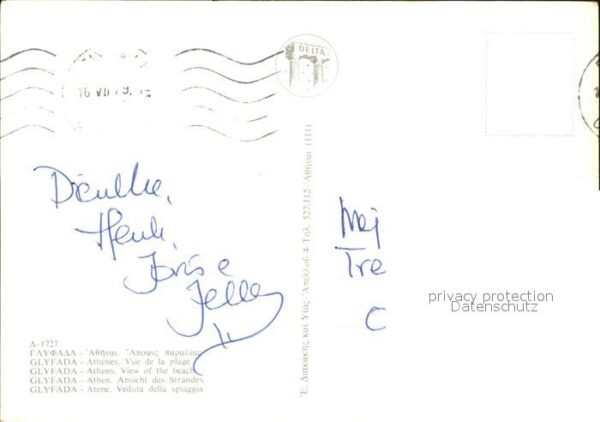 DELTA
16 VII 79
Henk,
Joris e
Jelle
Δ-1727
ΓΛΥΦΑΔΑ – Ἀθῆναι. Ἄποψις παραλίας
GLYFADA – Athènes. Vue de la plage
GLYFADA – Athens. View of the beach
GLYFADA – Athen. Ansicht des Strandes
GLYFADA – Atene. Veduta della spiaggia
Ε. Διακάκης καὶ Υἱὸς Ἀπελλοῦ 4 Τηλ. 522.112 Ἀθῆναι (111)
Mej
Tre
C
privacy protection
Datenschutz